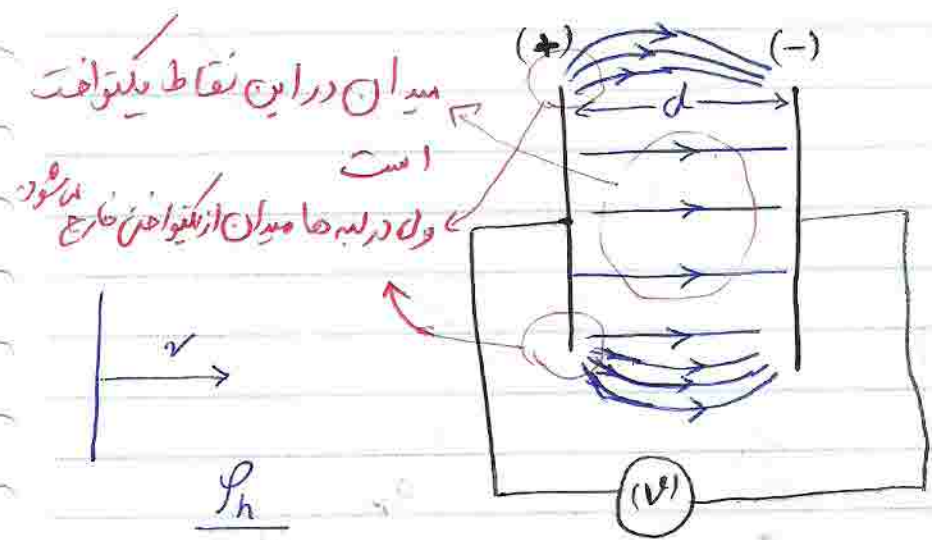 (+) (-)
میدان در این نقاط یکنواخت
d
است
ولی در لبه ها میدان از یکنواختی خارج می شود.
v
(V)